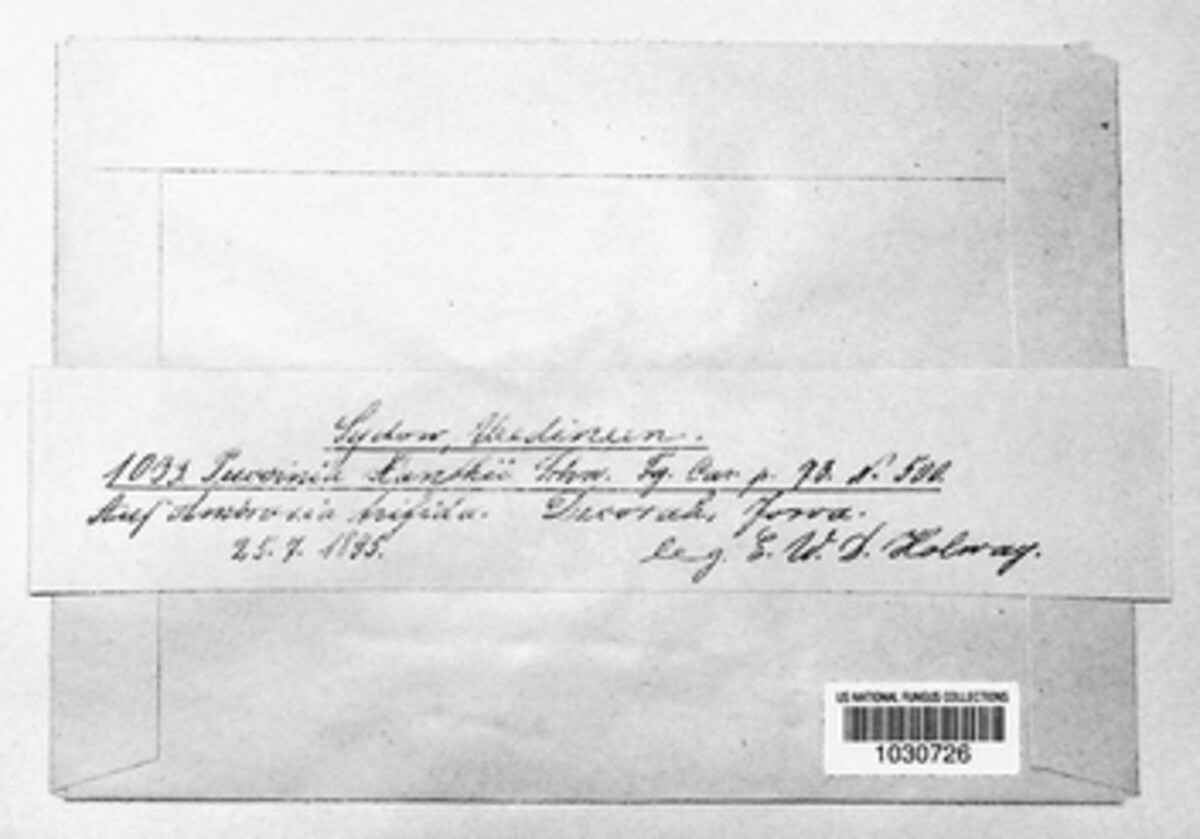 Sydow, Uredineen.
1033 Puccinia Xanthii Schw. Fg. Car. p. 93. N. 500
Auf Ambrosia trifida. Decorah, Jowa.
25. 7. 1895. leg. E. W. D. Holway.
US NATIONAL FUNGUS COLLECTIONS
1030726